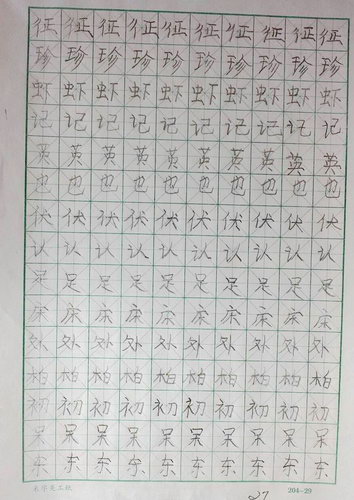 征征征征征征征征征征
珍珍珍珍珍珍珍珍珍珍
虾虾虾虾虾虾虾虾虾虾
记记记记记记记记记记
英英英英英英英英英英
也也也也也也也也也也
伏伏伏伏伏伏伏伏伏伏
认认认认认认认认认认
足足足足足足足足足足
床床床床床床床床床床
外外外外外外外外外外
柏柏柏柏柏柏柏柏柏柏
初初初初初初初初初初
呆呆呆呆呆呆呆呆呆呆
东东东东东东东东东东
204-29
27